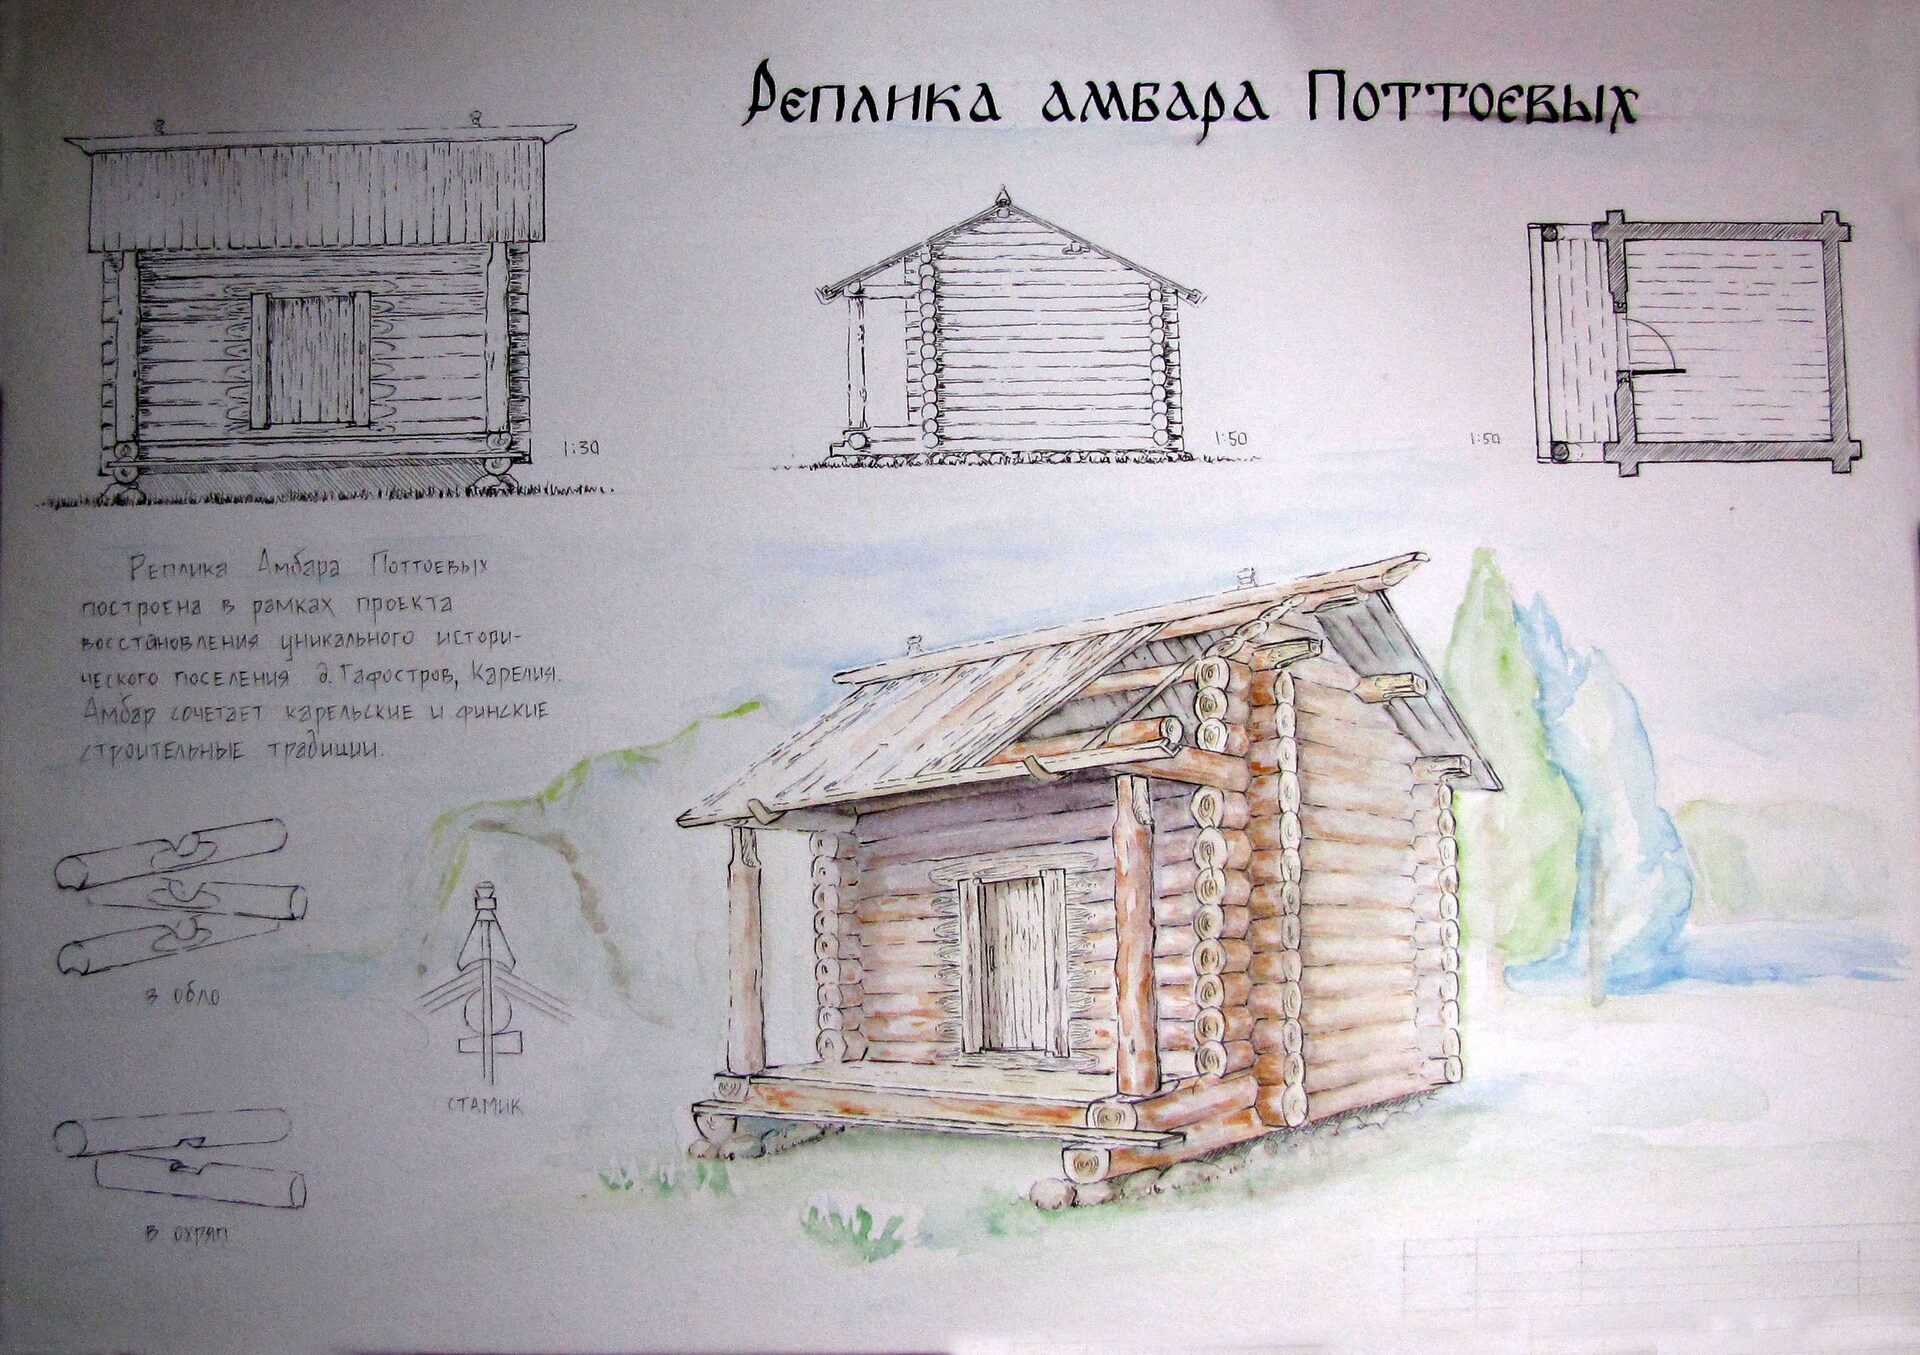 Реплика амбара Поттоевых
1:30
1:50
1:50
Реплика Амбара Поттоевых
построена в рамках проекта
восстановления уникального истори-
ческого поселения д. Гафостров, Карелия.
Амбар сочетает карельские и финские
строительные традиции.
в обло
стамик
в охряп